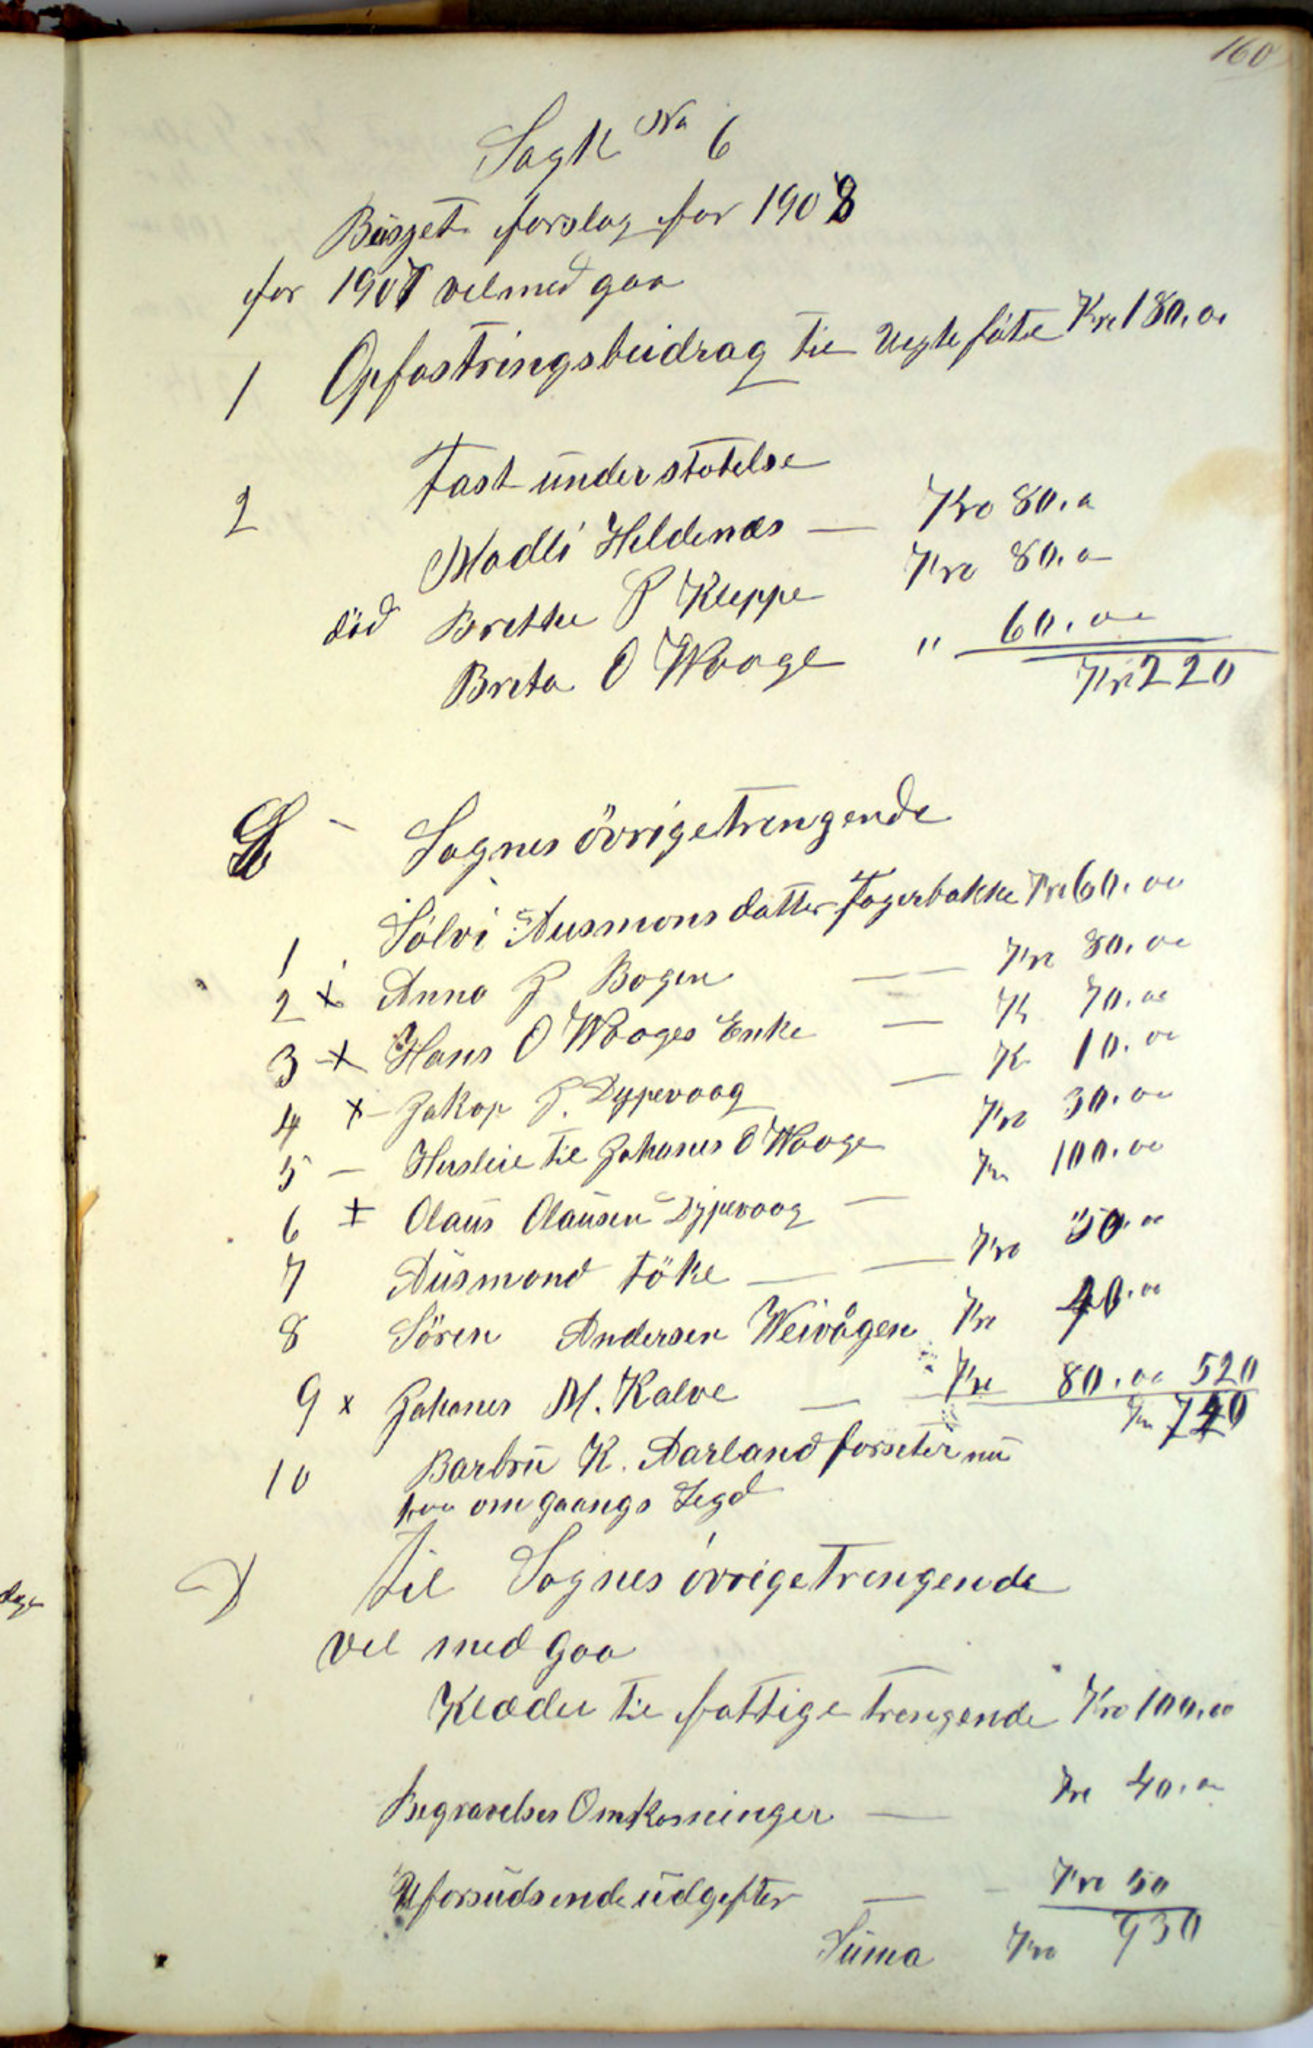 160
Sagk No 6
Büszet forslag for 1908
for 1907 vel med gaa
1 Opfostringsbeidrag til Uegte føtte Kr 180,00
2 Fast understøtelse
Madli Heldenæs — Kro 80.0
död Brethe P Kleppe Kro 80.0
Breta O Waage " 60.00
Kr 220
Sognes övrige trengende
1 Sølvi Ausmons datter Fagerbakke Kr 60.00
2 x Anna J Bogen — — Kr 80.00
3 x Hans O Waages Enke — K 70.00
4 x Jakop J. Dypevaag — K 10.00
5 — Husleie til Johanes O Waage Kro 30.00
6 x Olaüs Olaüsen Dypevaag — Kr 100.00
7 Aüsmond Töke — — Kro 50.00
8 Sören Andersen Weivågen Kr 40.00
9 x Johanes M. Kalve — Kr 80.00 520
Kr 740
10 Barbrü K. Aarland forseter nü
paa om gaangs Legd
til Sognes övrige trengende
vel med gaa
Klæder til fattige trengende Kro 100,00
Begravelses Omkosninger — Kr 40.0
Uforsüdsende üdgifter — - Kro 50
Süma Kro 930